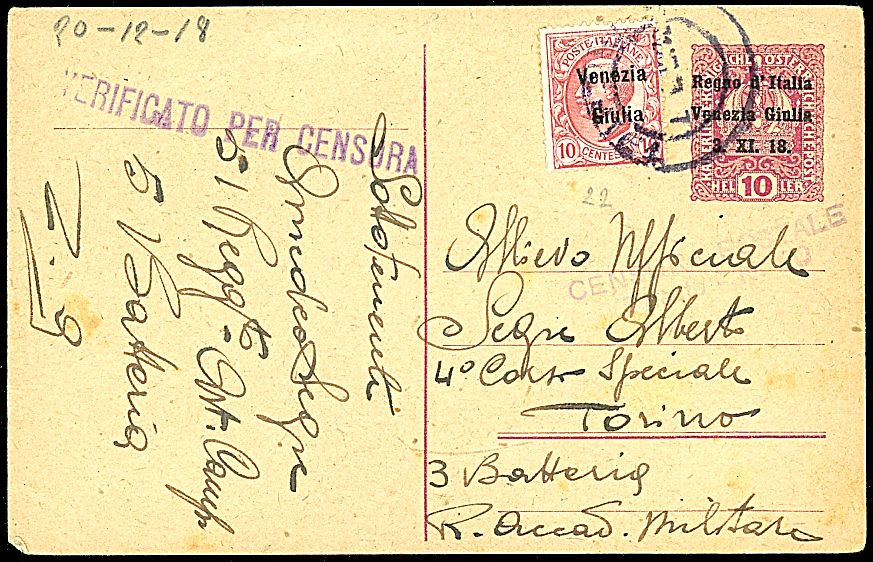 20-12-18
VERIFICATO PER CENSURA
Sottotenente
Amedeo Segre
51 Regg.to - Art. Camp.
5 Batteria
Z. G
POSTE ITALIANE
Venezia
Giulia
10 CENTESIMI
22
Regno d'Italia
Venezia Giulia
3. XI. 18.
HEL 10 LER
CENSURA POSTALE
Allievo Ufficiale
Segre Alberto
4° Corso Speciale
Torino
3 Batteria
R. Accad. Militare